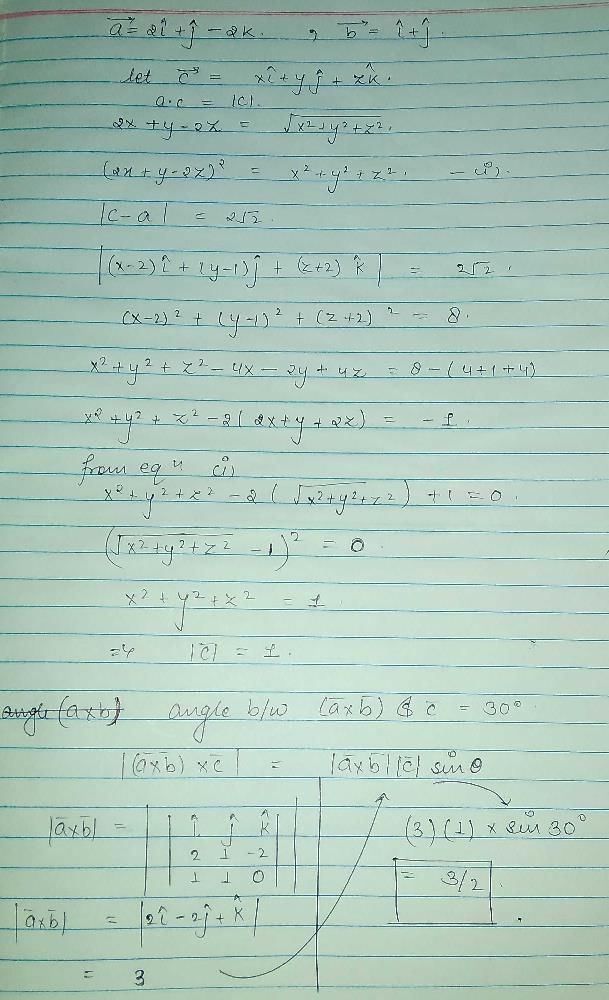 a⃗ = 2î + ĵ - 2k. , b⃗ = î + ĵ.
let c⃗ = xî + yĵ + zk̂.
a.c = |c|.
2x + y - 2z = √x² + y² + z².
(2x + y - 2z)² = x² + y² + z². - (i).
|c - a| = 2√2.
|(x-2)î + (y-1)ĵ + (z+2)k̂| = 2√2.
(x-2)² + (y-1)² + (z+2)² = 8.
x² + y² + z² - 4x - 2y + 4z = 8 - (4+1+4)
x² + y² + z² - 2(2x + y + 2z) = -1.
from eqⁿ (i)
x² + y² + z² - 2(√x² + y² + z²) + 1 = 0.
(√x² + y² + z² - 1)² = 0.
x² + y² + z² = 1.
=> |c̄| = 1.
angle (axb) angle b/w (āxb̄) & c̄ = 30°.
|(āxb̄) x c̄| = |āxb̄||c̄| sin θ
|āxb̄| = || î ĵ k̂ ||
2 1 -2
1 1 0
(3)(1) x sin 30°
= 3/2.
|āxb̄| = |2î - 2ĵ + k̂|
= 3